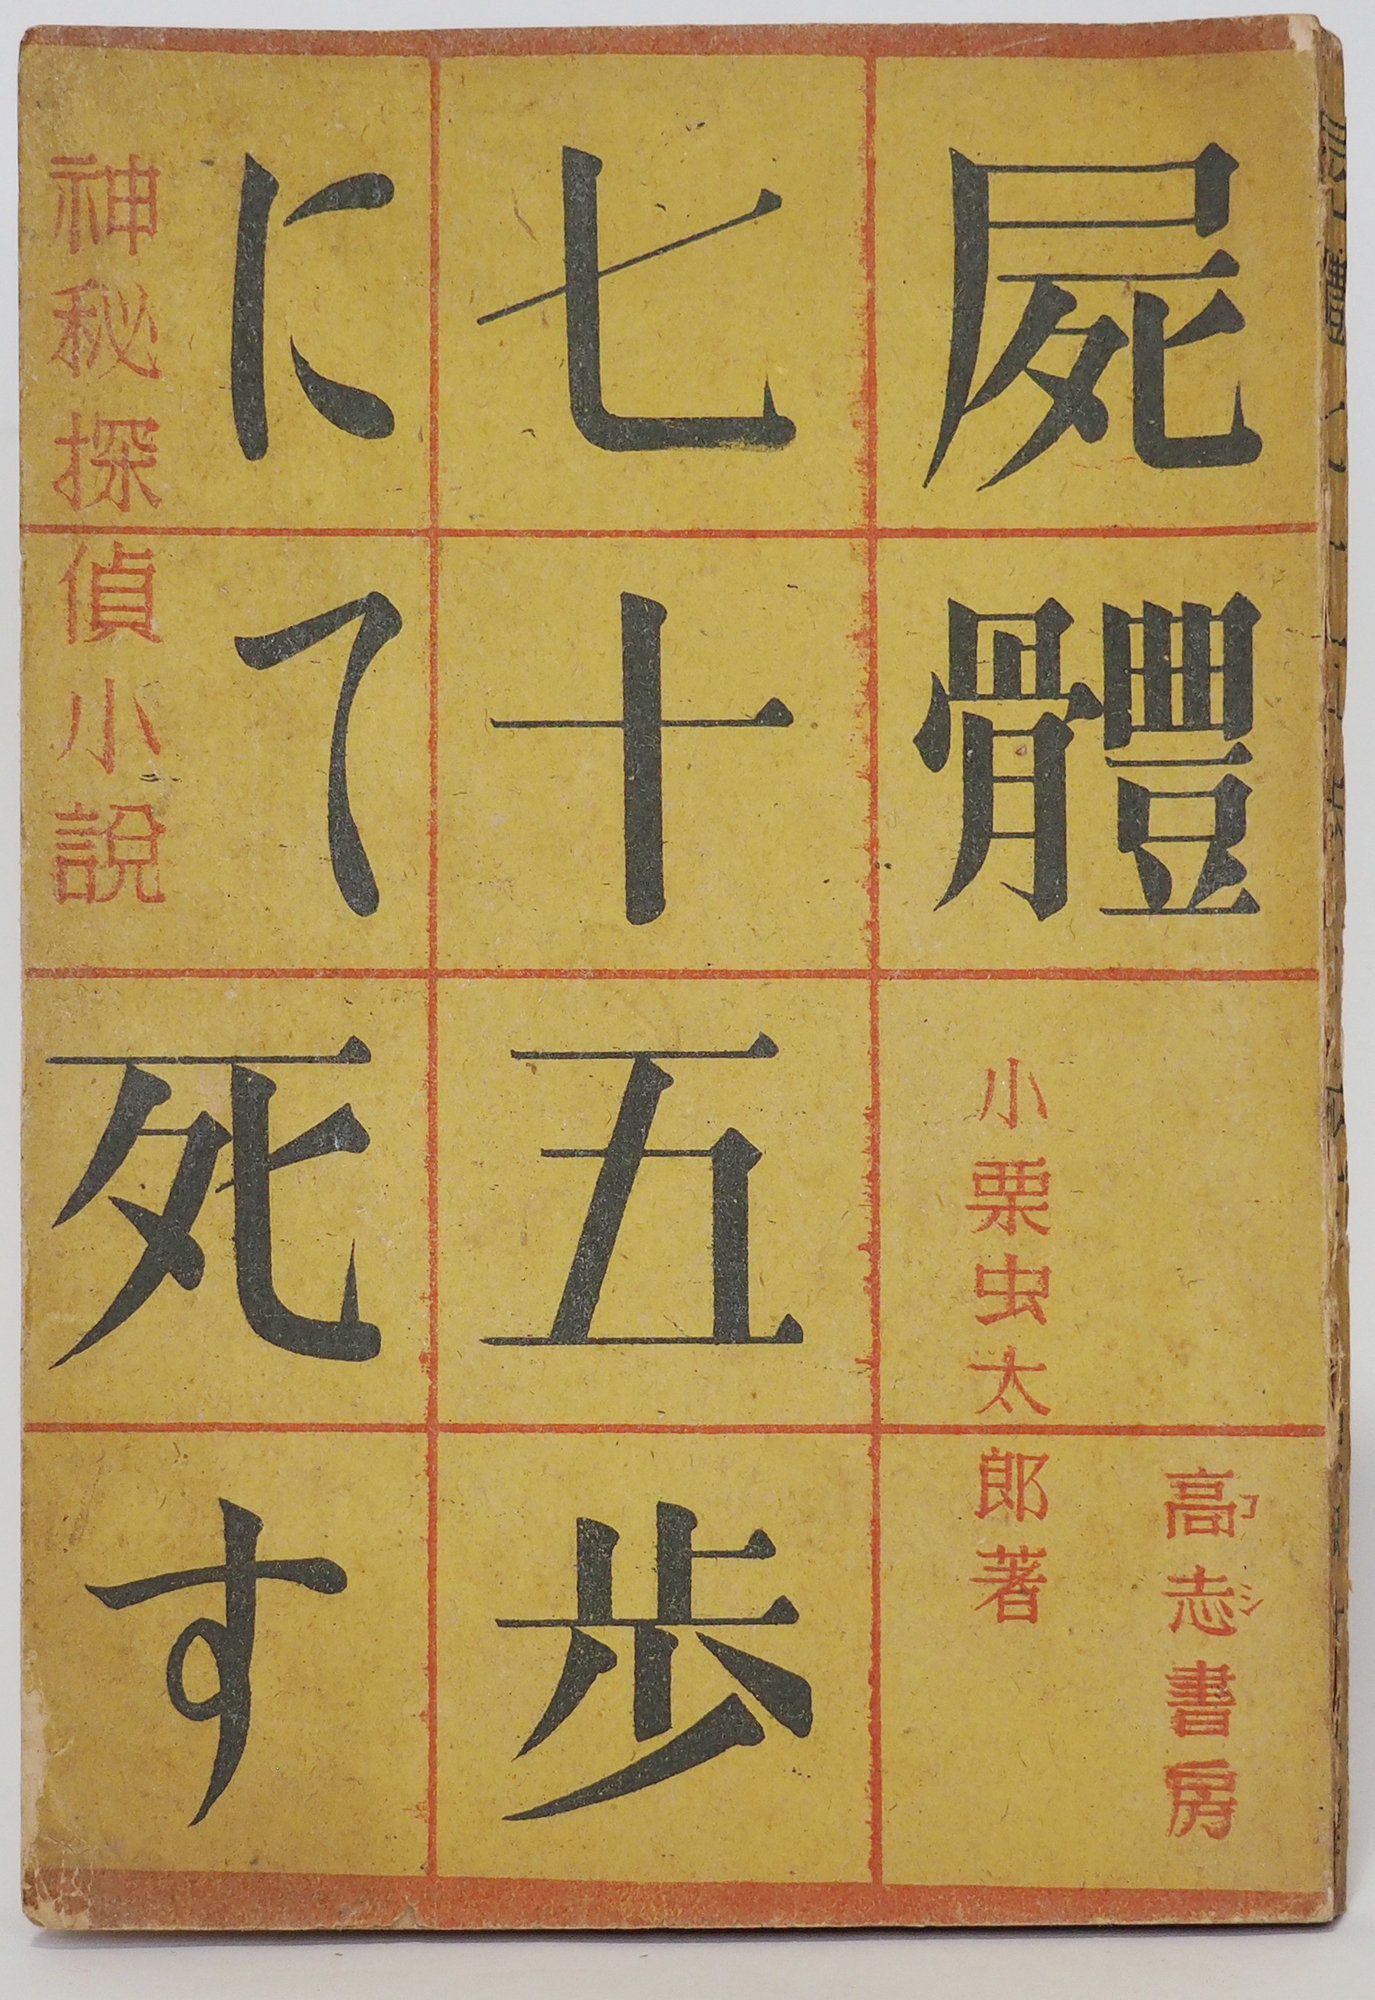 屍體
七十五歩
にて死す
小栗虫太郎著
高志書房
コシ
神秘探偵小説